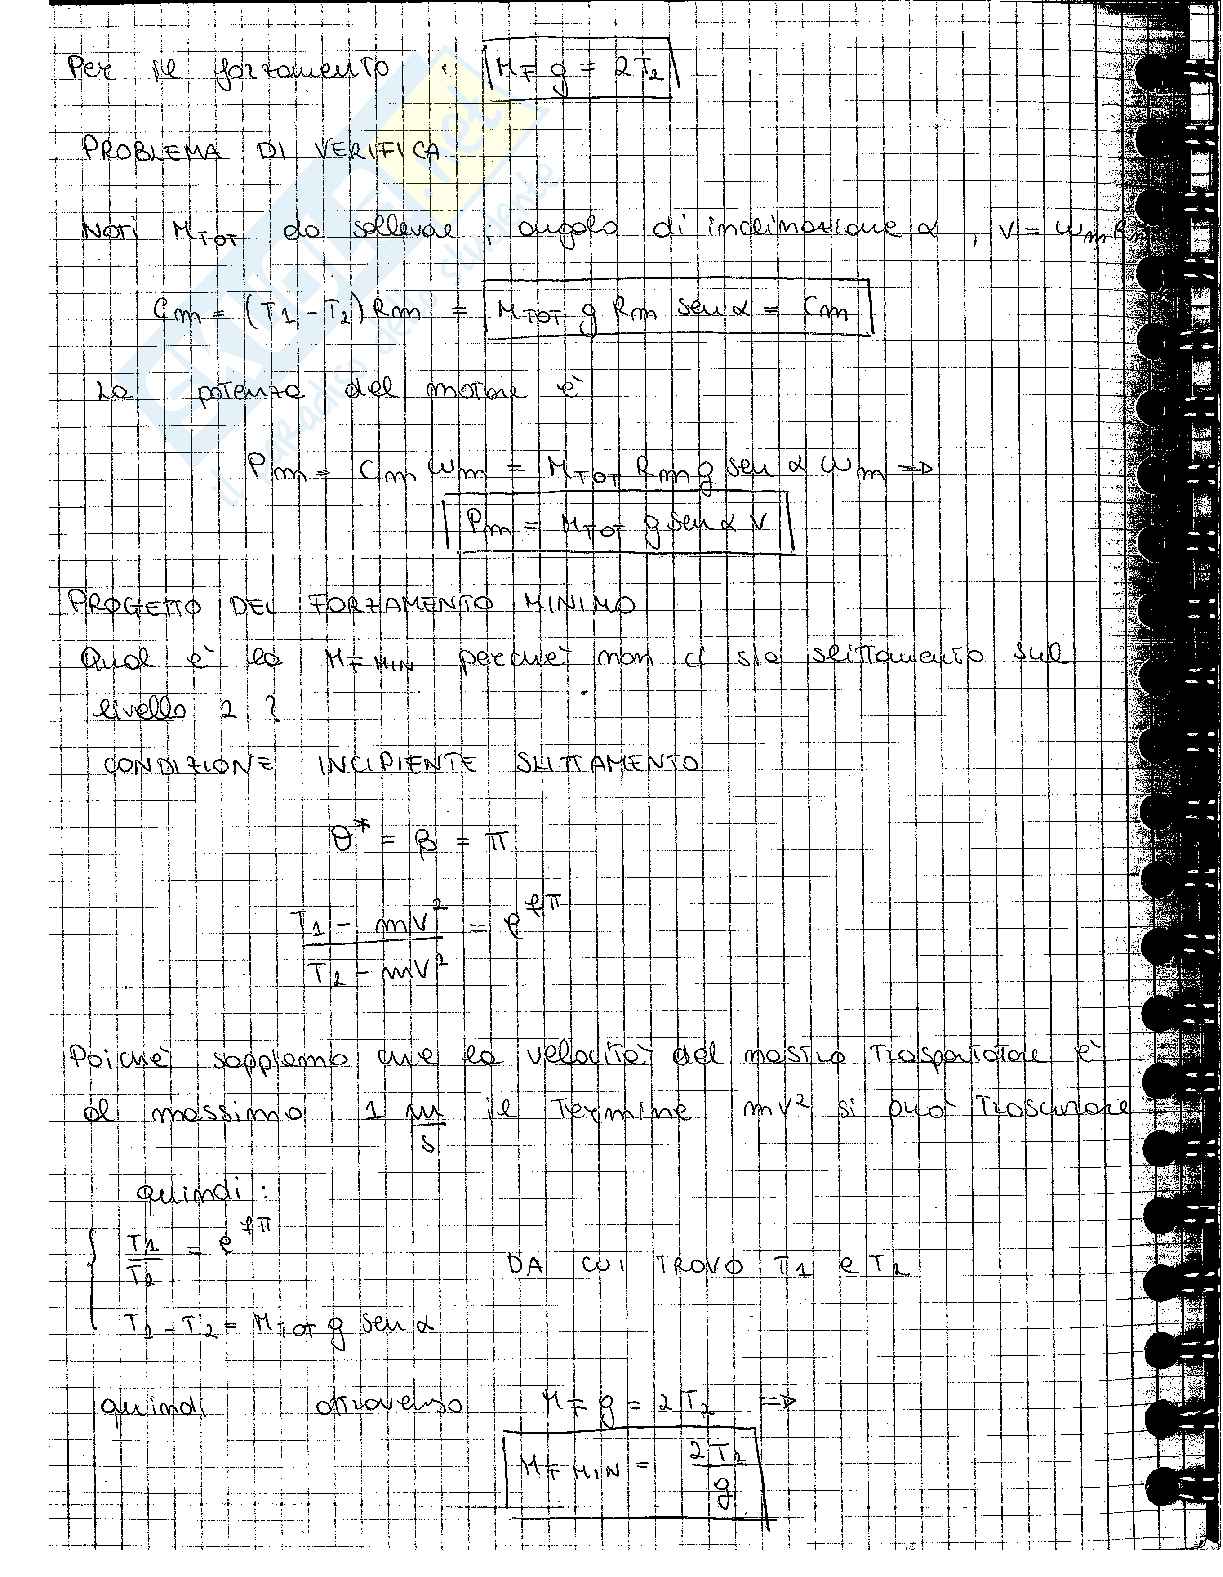 Per il forzamento : M_F g = 2T_2
PROBLEMA DI VERIFICA
Noti M_TOT da sollevare, angolo di inclinazione α, v = ω_m R
C_m = (T_1 - T_2) R_m = M_TOT g R_m sen α = C_m
La potenza del motore è
P_m = C_m ω_m = M_TOT R_m g sen α ω_m =>
P_m = M_TOT g sen α v
PROGETTO DEL FORZAMENTO MINIMO
Qual è la M_F MIN perché non ci sia slittamento sul
livello 2 ?
CONDIZIONE INCIPIENTE SLITTAMENTO
θ* = β = π
(T_1 - mV²)/(T_2 - mV²) = e^(fπ)
Poiché sappiamo che la velocità del nostro trasportatore è
al massimo 1 m/s il termine mv² si può trascurare
quindi :
T_1/T_2 = e^(fπ)
DA CUI TROVO T_1 e T_2
T_1 - T_2 = M_TOT g sen α
quindi attraverso M_F g = 2T_2 =>
M_F MIN = 2T_2/g